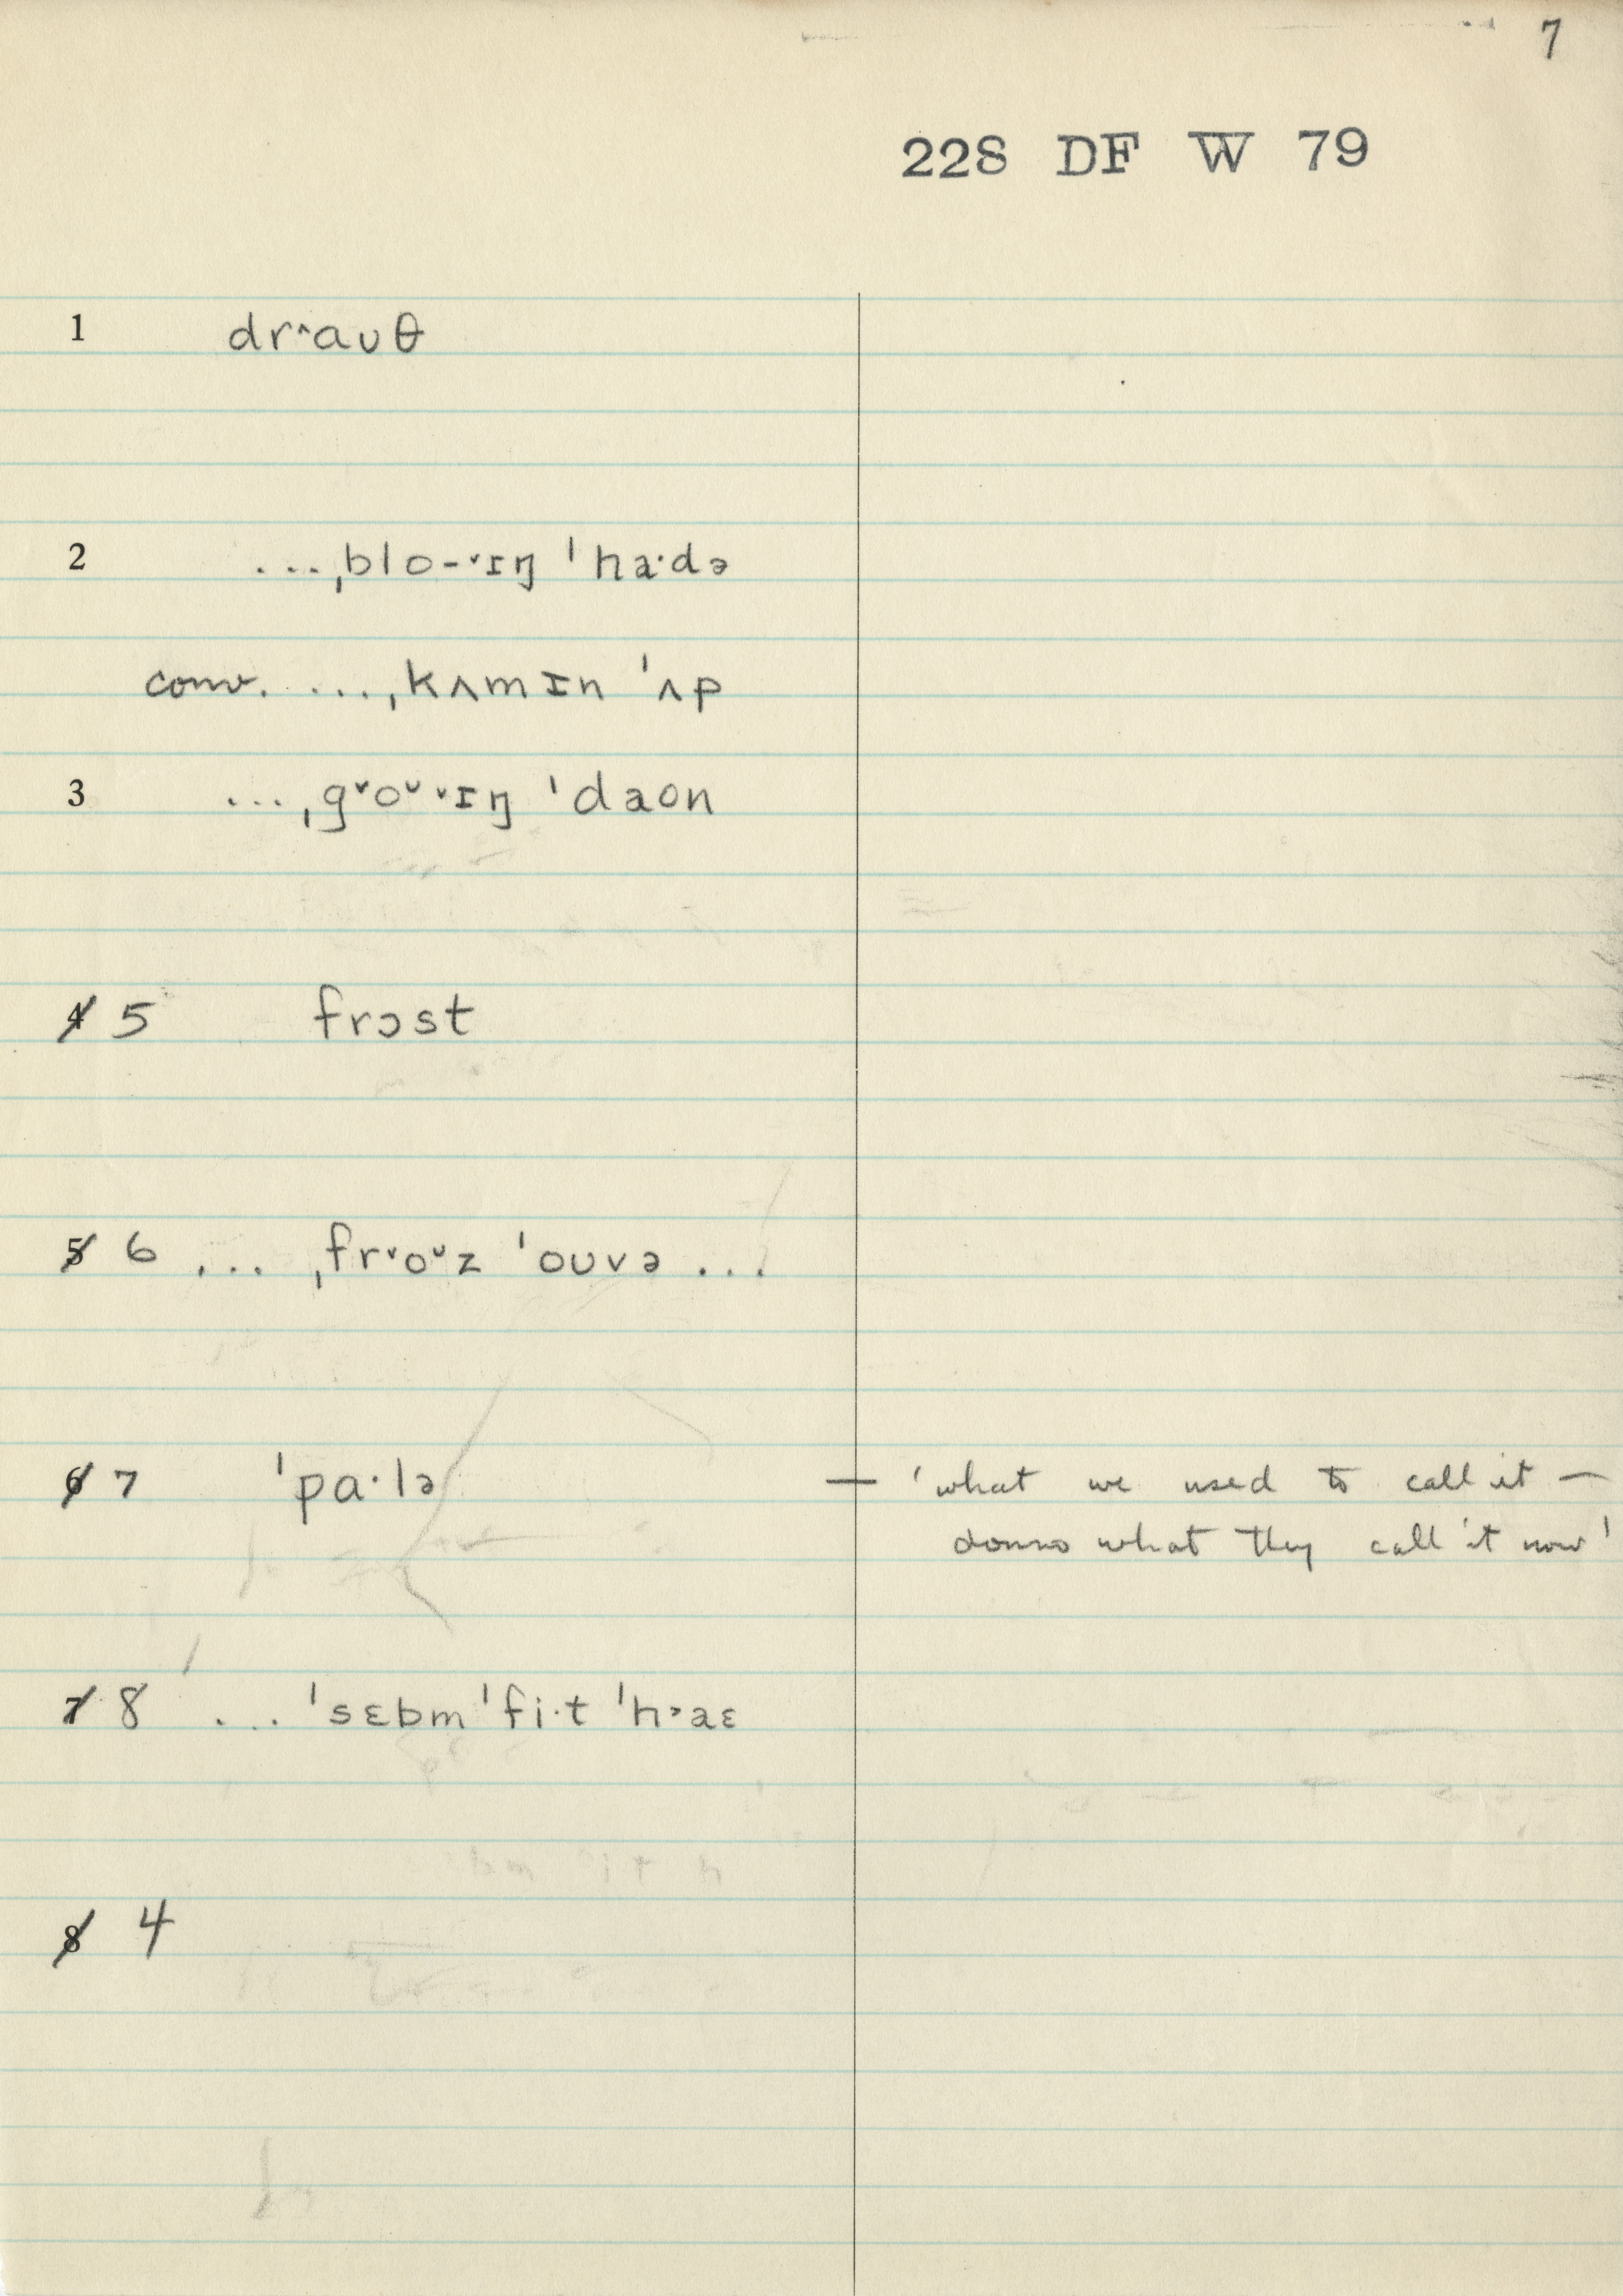 7
228 DF W 79
1 drˆaʊθ
2 ...ˌblo-ˑˇɪŋ ˈhaˑdə
conv. ...ˌkʌmɪn ˈʌp
3 ...ˌgˇoᵘˑˇɪŋ ˈdaʊn
4 5 frɔst
5 6 ... ˌfrˇoᵘz ˈoʊvə ...
6 7 ˈpaˑlə — 'what we used to call it —
donno what they call it now'
7 8 ... ˈsɛbmˈfiˑt ˈhᵊaɛ
8 4